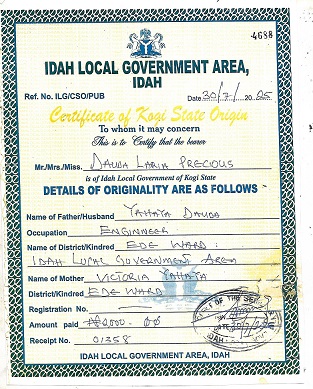 4688
IDAH LOCAL GOVERNMENT AREA,
IDAH
Ref. No. ILG/CSO/PUB Date 30/7/ 2025
Certificate of Kogi State Origin
To whom it may concern
This is to Certify that the bearer
Mr./Mrs./Miss. DAUDA LARIA PRECIOUS
is of Idah Local Government of Kogi State
DETAILS OF ORIGINALITY ARE AS FOLLOWS
Name of Father/Husband YAHAYA DAUDA
Occupation ENGINNEER
Name of District/Kindred EDE WARD:
IDAH LOCAL GOVERNMENT AREA
Name of Mother VICTORIA YAHAYA
District/Kindred EDE WARD
Registration No.
Amount paid ₦2000.00
Receipt No. 01358
IDAH LOCAL GOVERNMENT AREA, IDAH